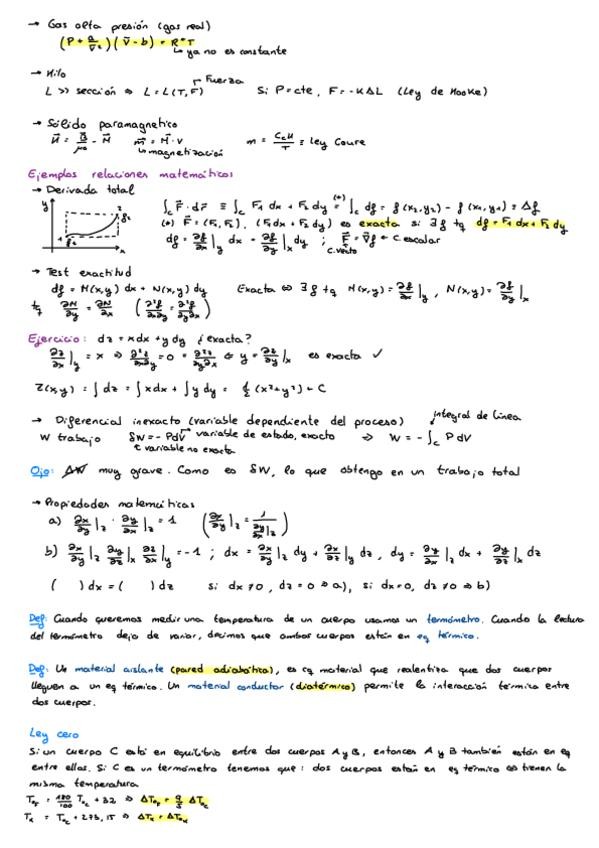 → Gas alta presión (gas real)
(P + a/v̄²)(v̄ - b) = R*T
↳ ya no es constante
→ Hilo
L >> sección ⇒ L = L(T, F) Fuerza Si P=cte, F=-KΔL (Ley de Hooke)
→ Sólido paramagnetico
H⃗ = B⃗/μ₀ - M⃗ m⃗ = M⃗·V m = CcH/T ≡ ley Coure
↳ magnetización
Ejemplos relaciones matemáticas
→ Derivada total
∫c F⃗·dr⃗ ≡ ∫c F₁ dx + F₂ dy =(*) ∫c df = f(x₂,y₂) - f(x₁,y₁) = Δf
(*) F⃗ = (F₁, F₂), (F₁dx + F₂dy) es exacta si ∃f tq df = F₁dx + F₂dy
df = ∂f/∂x|y dx + ∂f/∂y|x dy ; F⃗ = ∇⃗f ← c. escalar
c. vecto
→ Test exactitud
df = M(x,y) dx + N(x,y) dy Exacta ⇔ ∃f tq M(x,y) = ∂f/∂x|y, N(x,y) = ∂f/∂y|x
tq ∂M/∂y = ∂N/∂x (∂²f/∂x∂y = ∂²f/∂y∂x)
Ejercicio: dz = xdx + ydy ¿exacta?
∂z/∂x|y = x ⇒ ∂²z/∂x∂y = 0 = ∂²z/∂y∂x ⇐ y = ∂z/∂y|x es exacta ✓
Z(x,y) = ∫dz = ∫xdx + ∫y dy = ½(x²+y²) + C
→ Diferencial inexacto (variable dependiente del proceso) integral de línea
W trabajo δW = -PdV variable de estado, exacto ⇒ W = -∫c P dV
variable no exacta
Ojo: ΔW muy grave. Como es δW, lo que obtengo en un trabajo total
→ Propiedades matemáticas
a) ∂x/∂y|z · ∂y/∂x|z = 1 (∂x/∂y|z = 1/(∂y/∂x|z))
b) ∂x/∂y|z ∂y/∂z|x ∂z/∂x|y = -1 ; dx = ∂x/∂y|z dy + ∂x/∂z|y dz, dy = ∂y/∂x|z dx + ∂y/∂z|x dz
( ) dx = ( ) dz si dx≠0, dz=0 ⇒ a), si dx=0, dz≠0 ⇒ b)
Def: Cuando queremos medir una temperatura de un cuerpo usamos un termómetro. Cuando la lectura
del termómetro deja de variar, decimos que ambos cuerpos están en eq térmico.
Def: Un material aislante (pared adiabática), es cq material que realentiza que dos cuerpos
lleguen a un eq térmico. Un material conductor (diatérmico) permite la interacción térmica entre
dos cuerpos.
Ley cero
Si un cuerpo C está en equilibrio entre dos cuerpos A y B, entonces A y B también están en eq
entre ellos. Si C es un termómetro tenemos que: dos cuerpos están en eq térmico ⇔ tienen la
misma temperatura
TºF = 180/100 TºC + 32 ⇒ ΔTºF = 9/5 ΔTºC
TK = TºC + 273,15 ⇒ ΔTK = ΔTºC